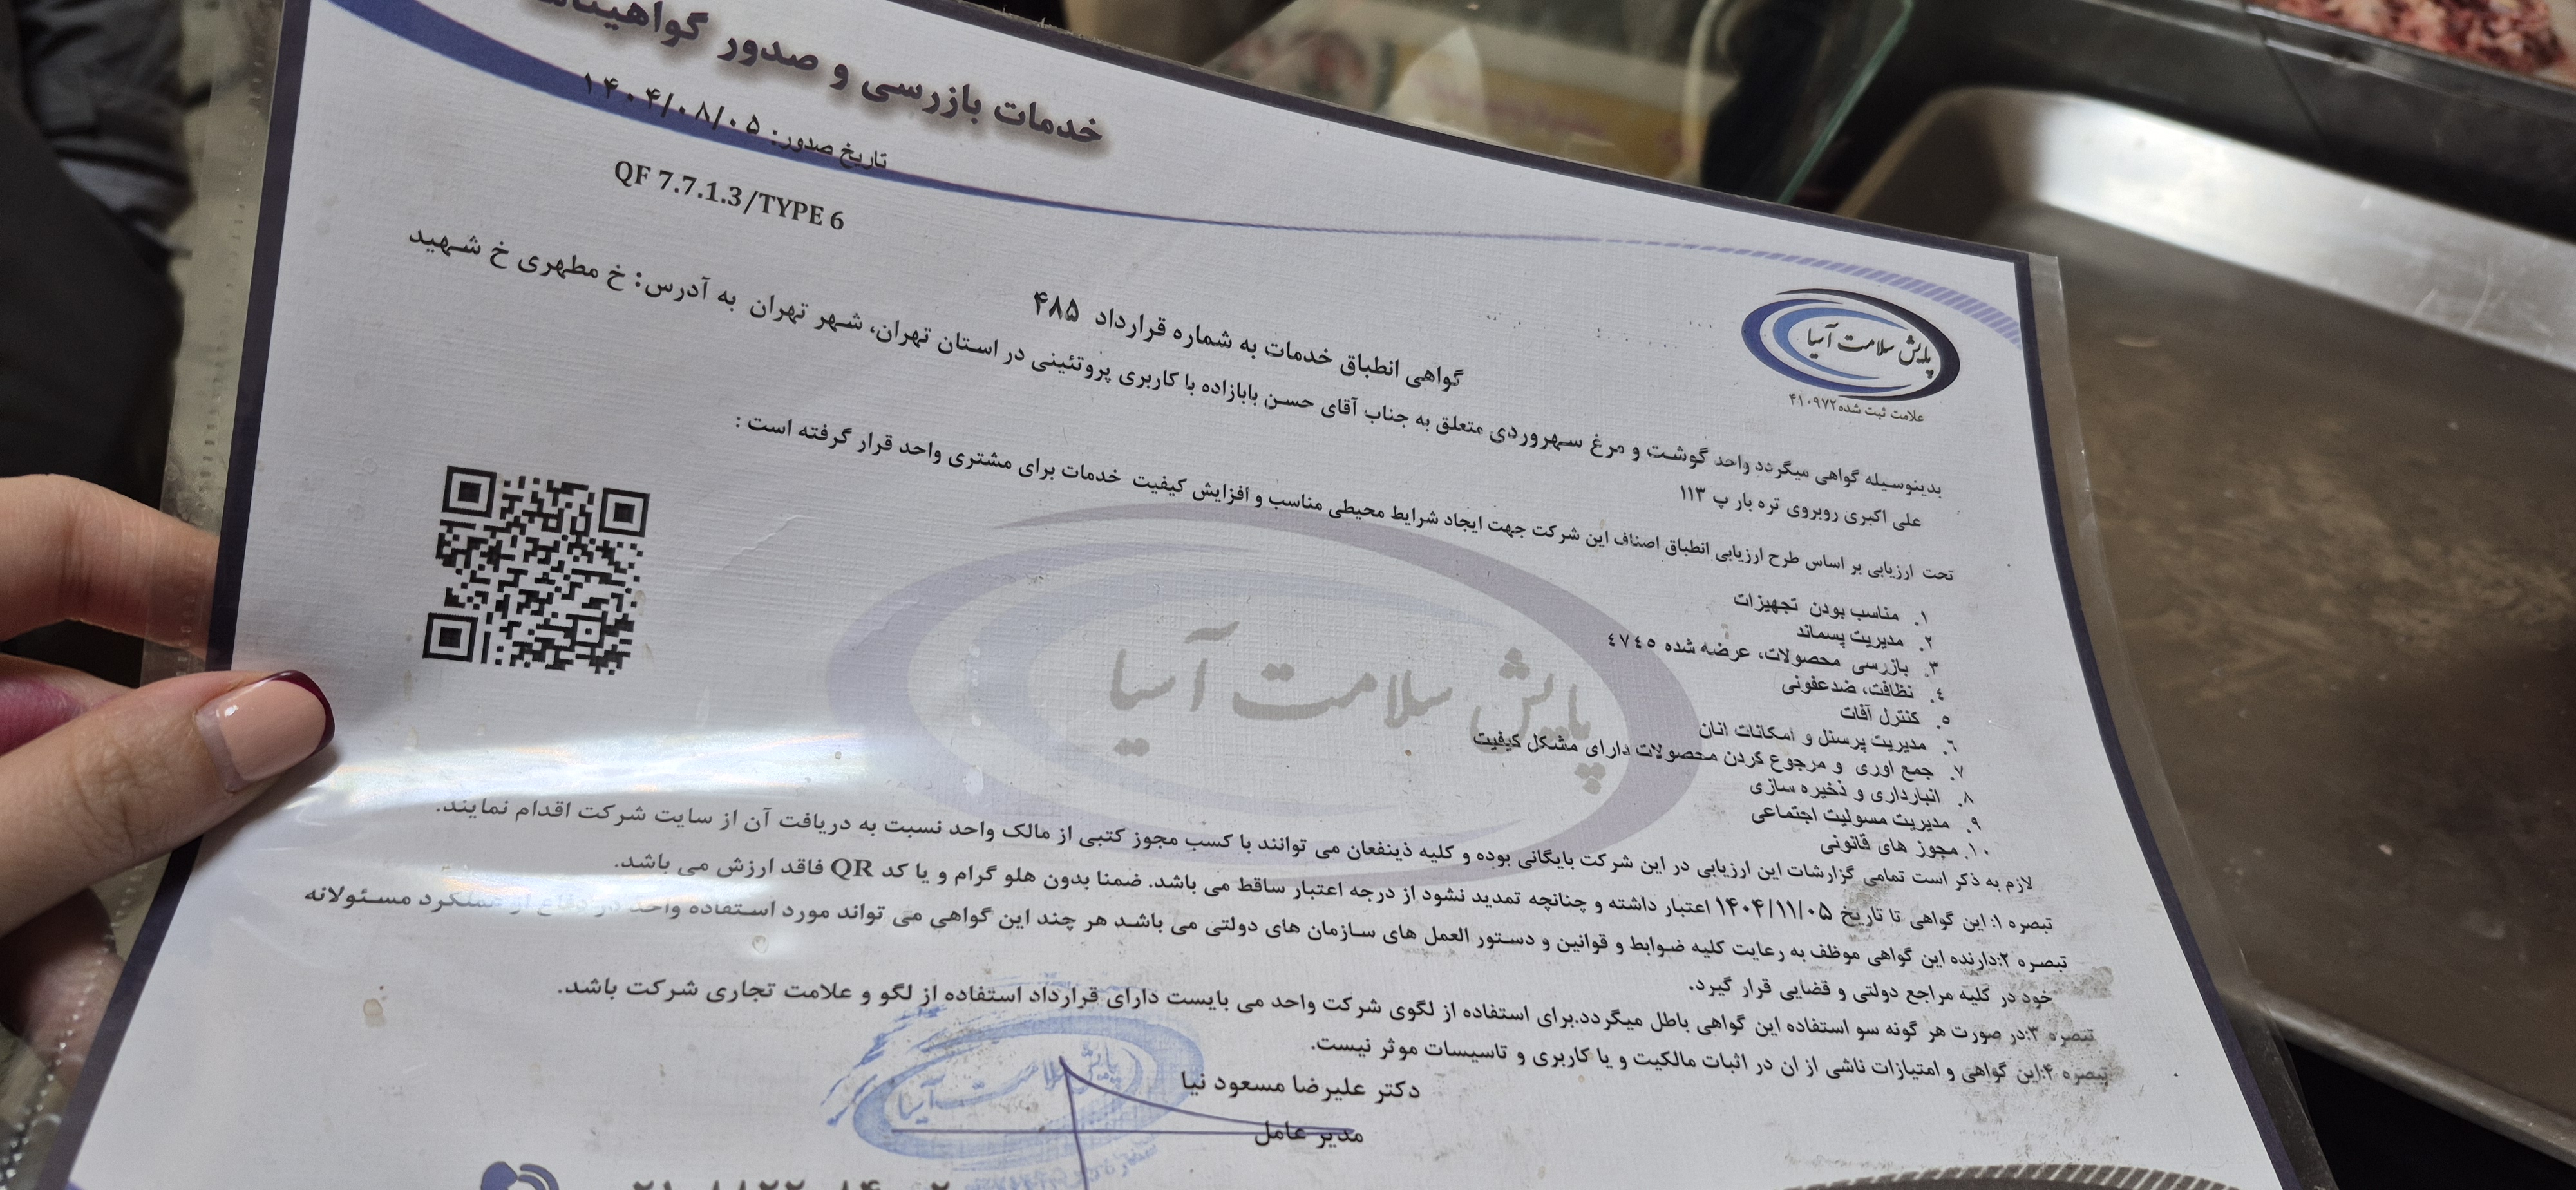 خدمات بازرسی و صدور
تاریخ صدور: ۱۴۰۴/۰۸/۰۵
QF 7.7.1.3/TYPE 6
پایش سلامت آسیا
علامت ثبت شده۴۱۰۹۷۲
گواهی انطباق خدمات به شماره قرارداد ۴۸۵
بدینوسیله گواهی میگردد واحد گوشت و مرغ سهروردی متعلق به جناب آقای حسن بابازاده با کاربری پروتئینی در استان تهران، شهر تهران به آدرس: خ مطهری خ شهید
علی اکبری روبروی تره بار پ ۱۱۳
تحت ارزیابی بر اساس طرح ارزیابی انطباق اصناف این شرکت جهت ایجاد شرایط محیطی مناسب و افزایش کیفیت خدمات برای مشتری واحد قرار گرفته است :
۱. مناسب بودن تجهیزات
۲. مدیریت پسماند
۳. بازرسی محصولات، عرضه شده ٤٧٤٥
٤. نظافت، ضدعفونی
٥. کنترل آفات
٦. مدیریت پرسنل و امکانات انان
۷. جمع اوری و مرجوع کردن محصولات دارای مشکل کیفیت
۸. انبارداری و ذخیره سازی
۹. مدیریت مسولیت اجتماعی
۱۰. مجوز های قانونی
پایش سلامت آسیا
لازم به ذکر است تمامی گزارشات این ارزیابی در این شرکت بایگانی بوده و کلیه ذینفعان می توانند با کسب مجوز کتبی از مالک واحد نسبت به دریافت آن از سایت شرکت اقدام نمایند.
تبصره ۱: این گواهی تا تاریخ ۱۴۰۴/۱۱/۰۵ اعتبار داشته و چنانچه تمدید نشود از درجه اعتبار ساقط می باشد. ضمنا بدون هلو گرام و یا کد QR فاقد ارزش می باشد.
تبصره ۲:دارنده این گواهی موظف به رعایت کلیه ضوابط و قوانین و دستور العمل های سازمان های دولتی می باشد هر چند این گواهی می تواند مورد استفاده واحد در دفاع از عملکرد مسئولانه
خود در کلیه مراجع دولتی و قضایی قرار گیرد.
تبصره ۳:در صورت هر گونه سو استفاده این گواهی باطل میگردد.برای استفاده از لگوی شرکت واحد می بایست دارای قرارداد استفاده از لگو و علامت تجاری شرکت باشد.
تبصره ۴:این گواهی و امتیازات ناشی از ان در اثبات مالکیت و یا کاربری و تاسیسات موثر نیست.
دکتر علیرضا مسعود نیا
مدیر عامل
پایش سلامت آسیا